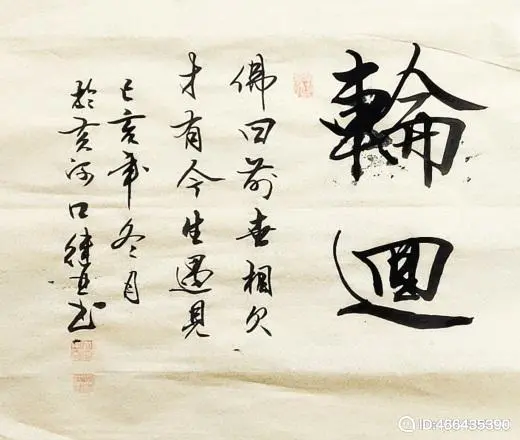 輪迴
佛曰前世相欠
才有今生遇見
己亥年冬月
於黄河口书
ID:466435390